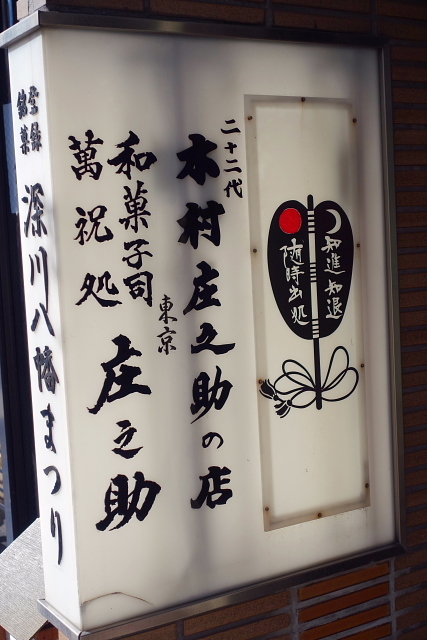 知進知退
随時出処
二十二代
木村庄之助の店
和菓子司
萬祝処
東京
庄之助
登録
銘菓
深川八幡まつり